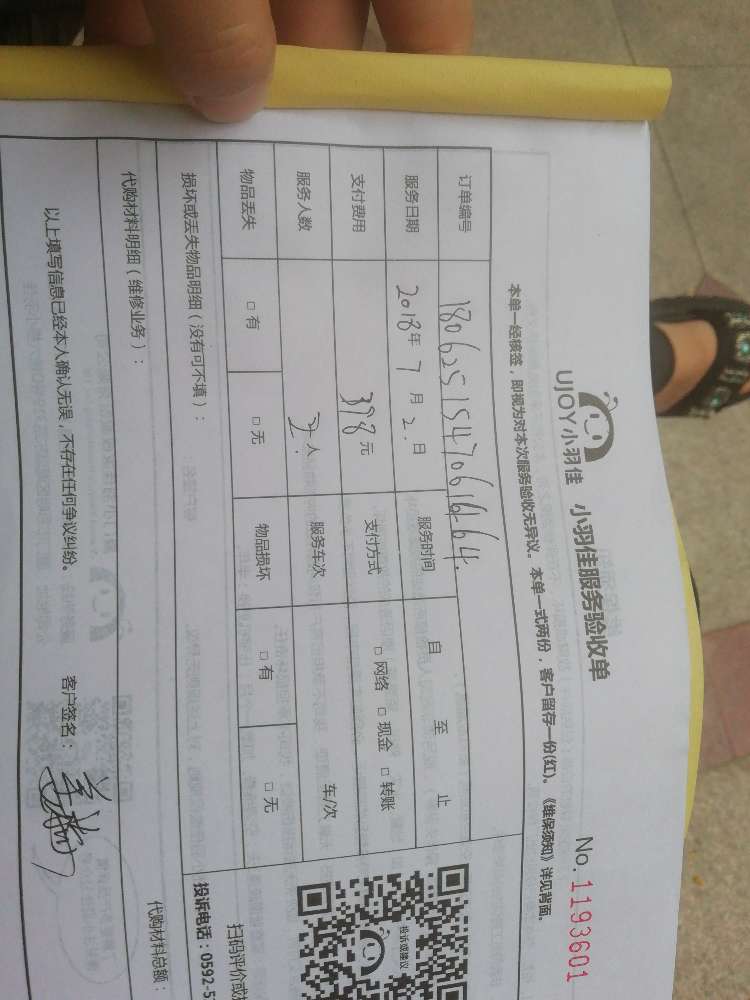 UJOY小羽佳 小羽佳服务验收单
No. 1193601
本单一经核签，即视为对本次服务验收无异议。本单一式两份，客户留存一份(红)。《维保须知》详见背面。
订单编号
服务日期 2018年 7 月 2. 日 服务时间 自 至 止
支付费用 378元 支付方式 □ 网络 □ 现金 □ 转账
服务人数 2人. 服务车次 车/次
物品丢失 □ 有 □ 无 物品损坏 □ 有 □ 无
损坏或丢失物品明细（没有可不填）：
代购材料明细（维修业务）： 代购材料总额：
以上填写信息已经本人确认无误，不存在任何争议纠纷。 客户签名：
投诉或建议
扫码评价或
投诉电话：0592-5